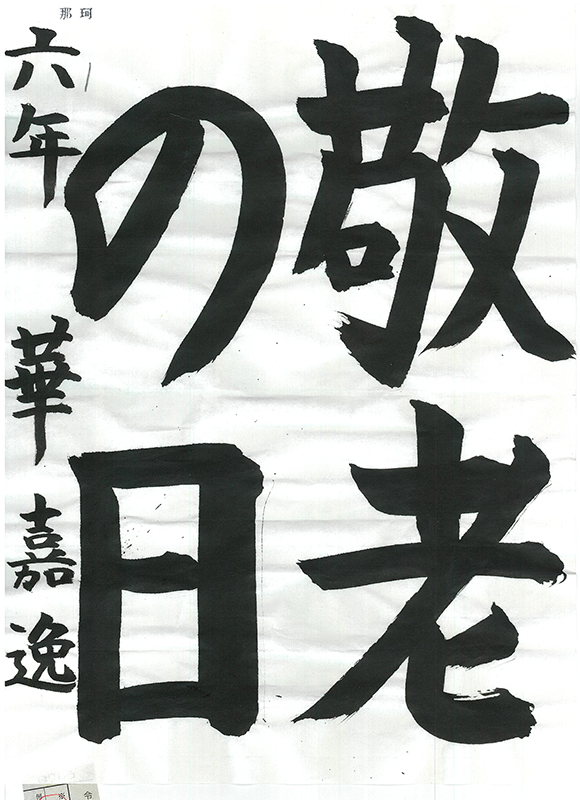 那珂
敬老
の日
六年 華 嘉逸